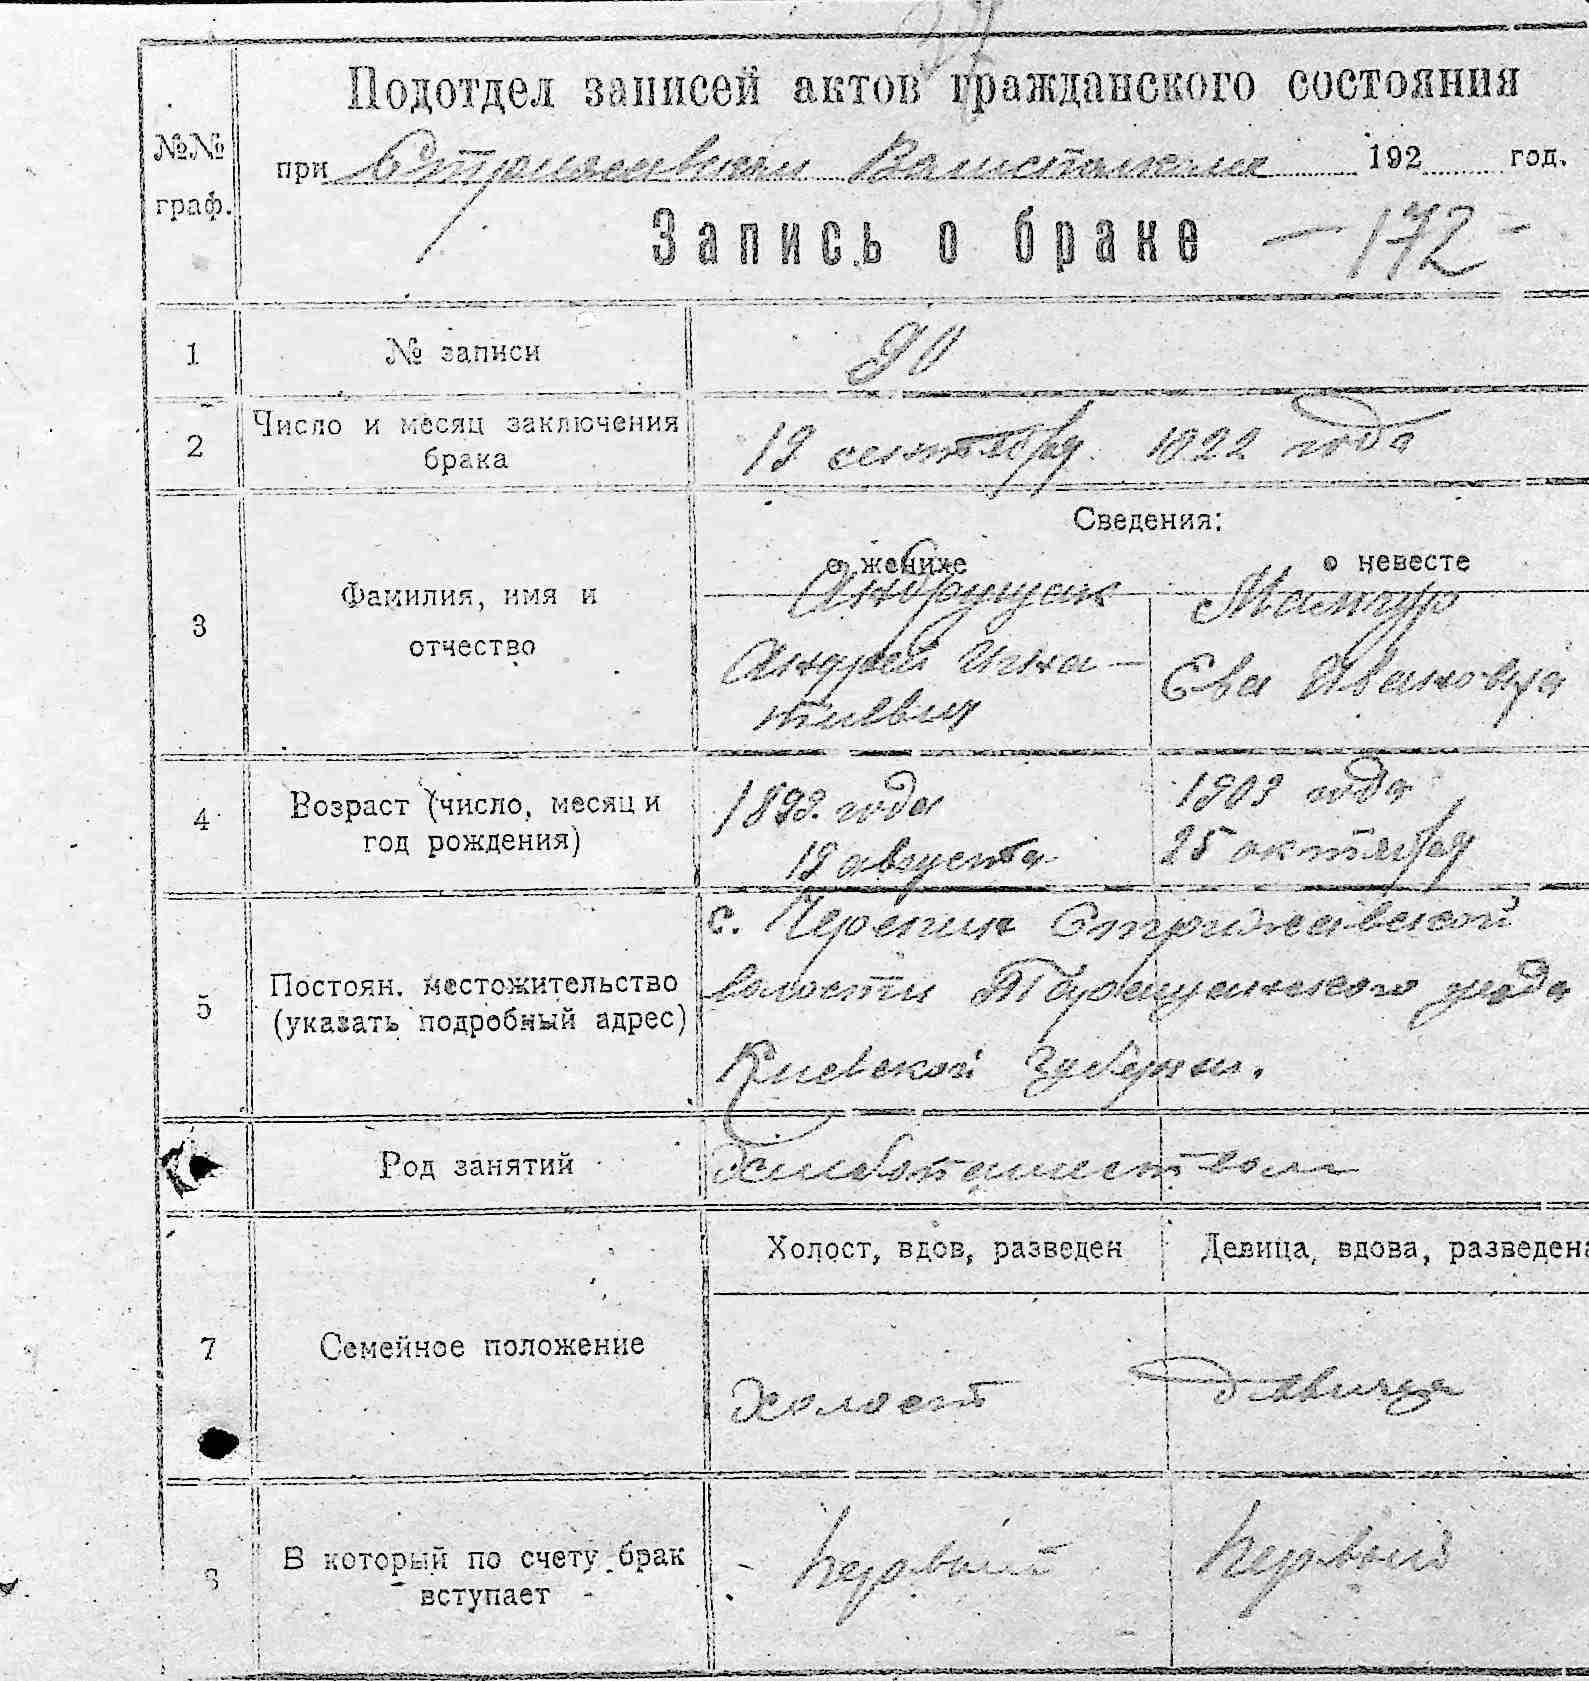 37
Подотдел записей актов гражданского состояния
№№ граф.
при Стрижавском Волисполкоме 192 год.
Запись о браке – 172 –
1 № записи 90
2 Число и месяц заключения брака
19 сентября 1922 года
Сведения:
о женихе о невесте
3 Фамилия, имя и отчество
Андрущак
Андрей Игна-
тиевич
Мамчур
Ева Ивановна
4 Возраст (число, месяц и год рождения)
1898 года
19 августа
1903 года
25 октября
5 Постоян. местожительство (указать подробный адрес)
с. Черепин Стрижавской
волости Таращанского уезда
Киевской губернии.
Род занятий
хлебопашеством
7 Семейное положение
Холост, вдов, разведен Девица, вдова, разведена
холост девица
8 В который по счету брак вступает
первый первый